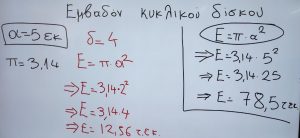 Εμβαδόν κυκλικού δίσκου
α=5 εκ
π=3,14
δ=4
Ε=π·α²
⇒Ε=3,14·2²
⇒Ε=3,14·4
⇒Ε=12,56 τ.εκ.
Ε=π·α²
⇒Ε=3,14·5²
⇒Ε=3,14·25
⇒Ε=78,5 τ.εκ.